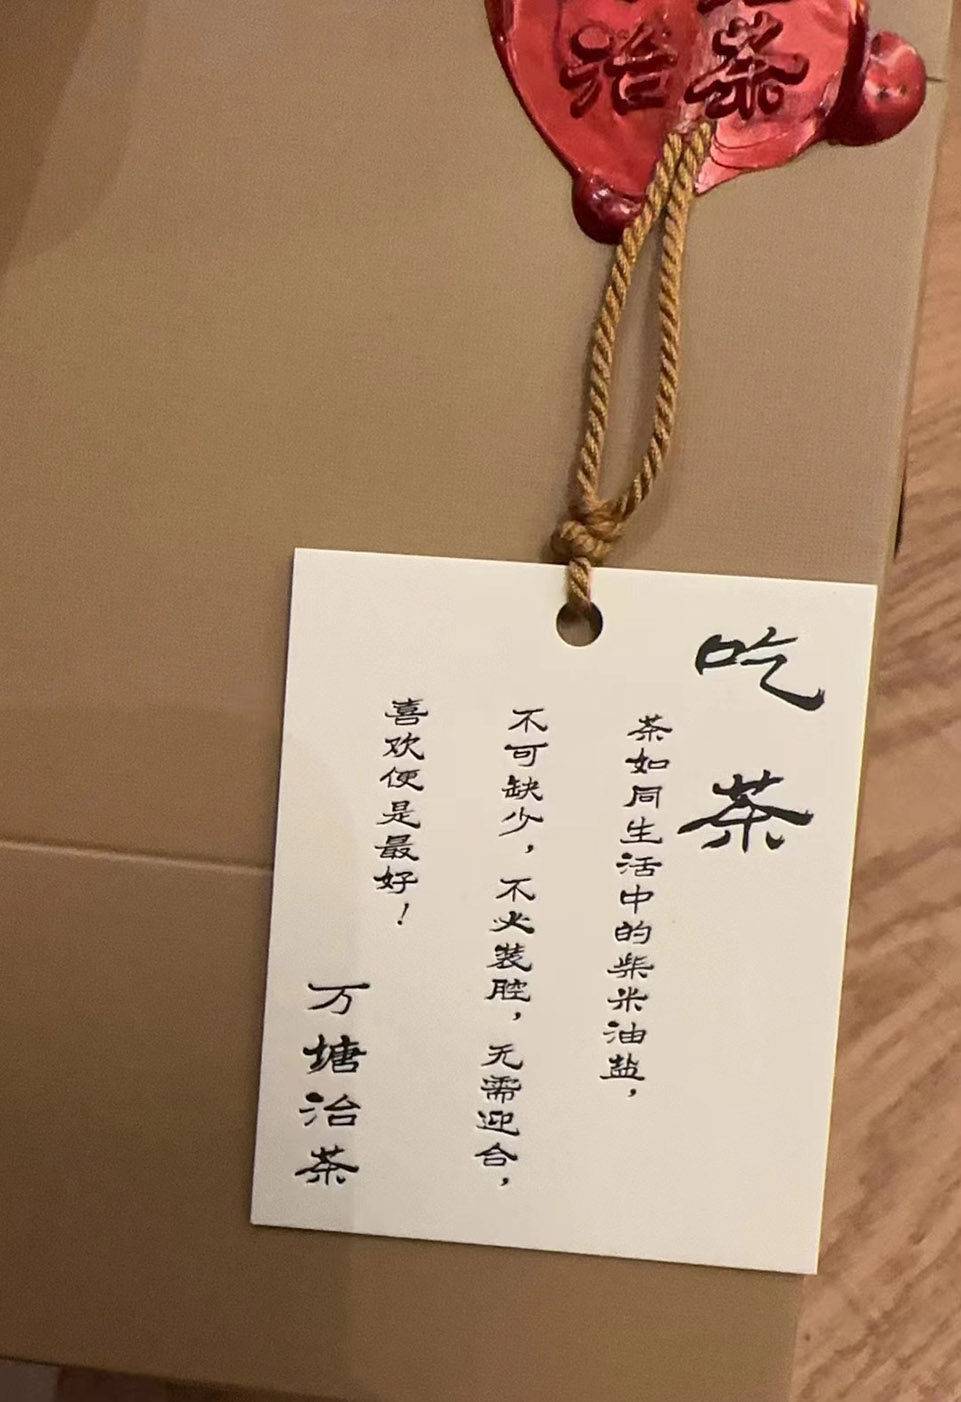 治茶
吃茶
茶如同生活中的柴米油盐，
不可缺少，不必装腔，无需迎合，
喜欢便是最好！
万塘治茶